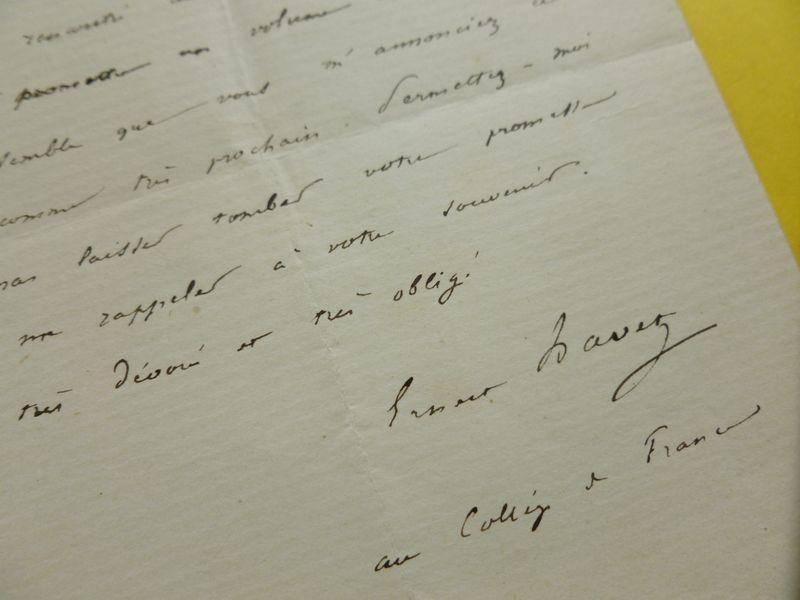 rencontré
promettre un volume
semble que vous m'annonciez
comme très prochain. Permettez-moi
pas laisser tomber votre promesse
me rappeler à votre souvenir.
très dévoué et très obligé
Ernest Havet
au Collège de France